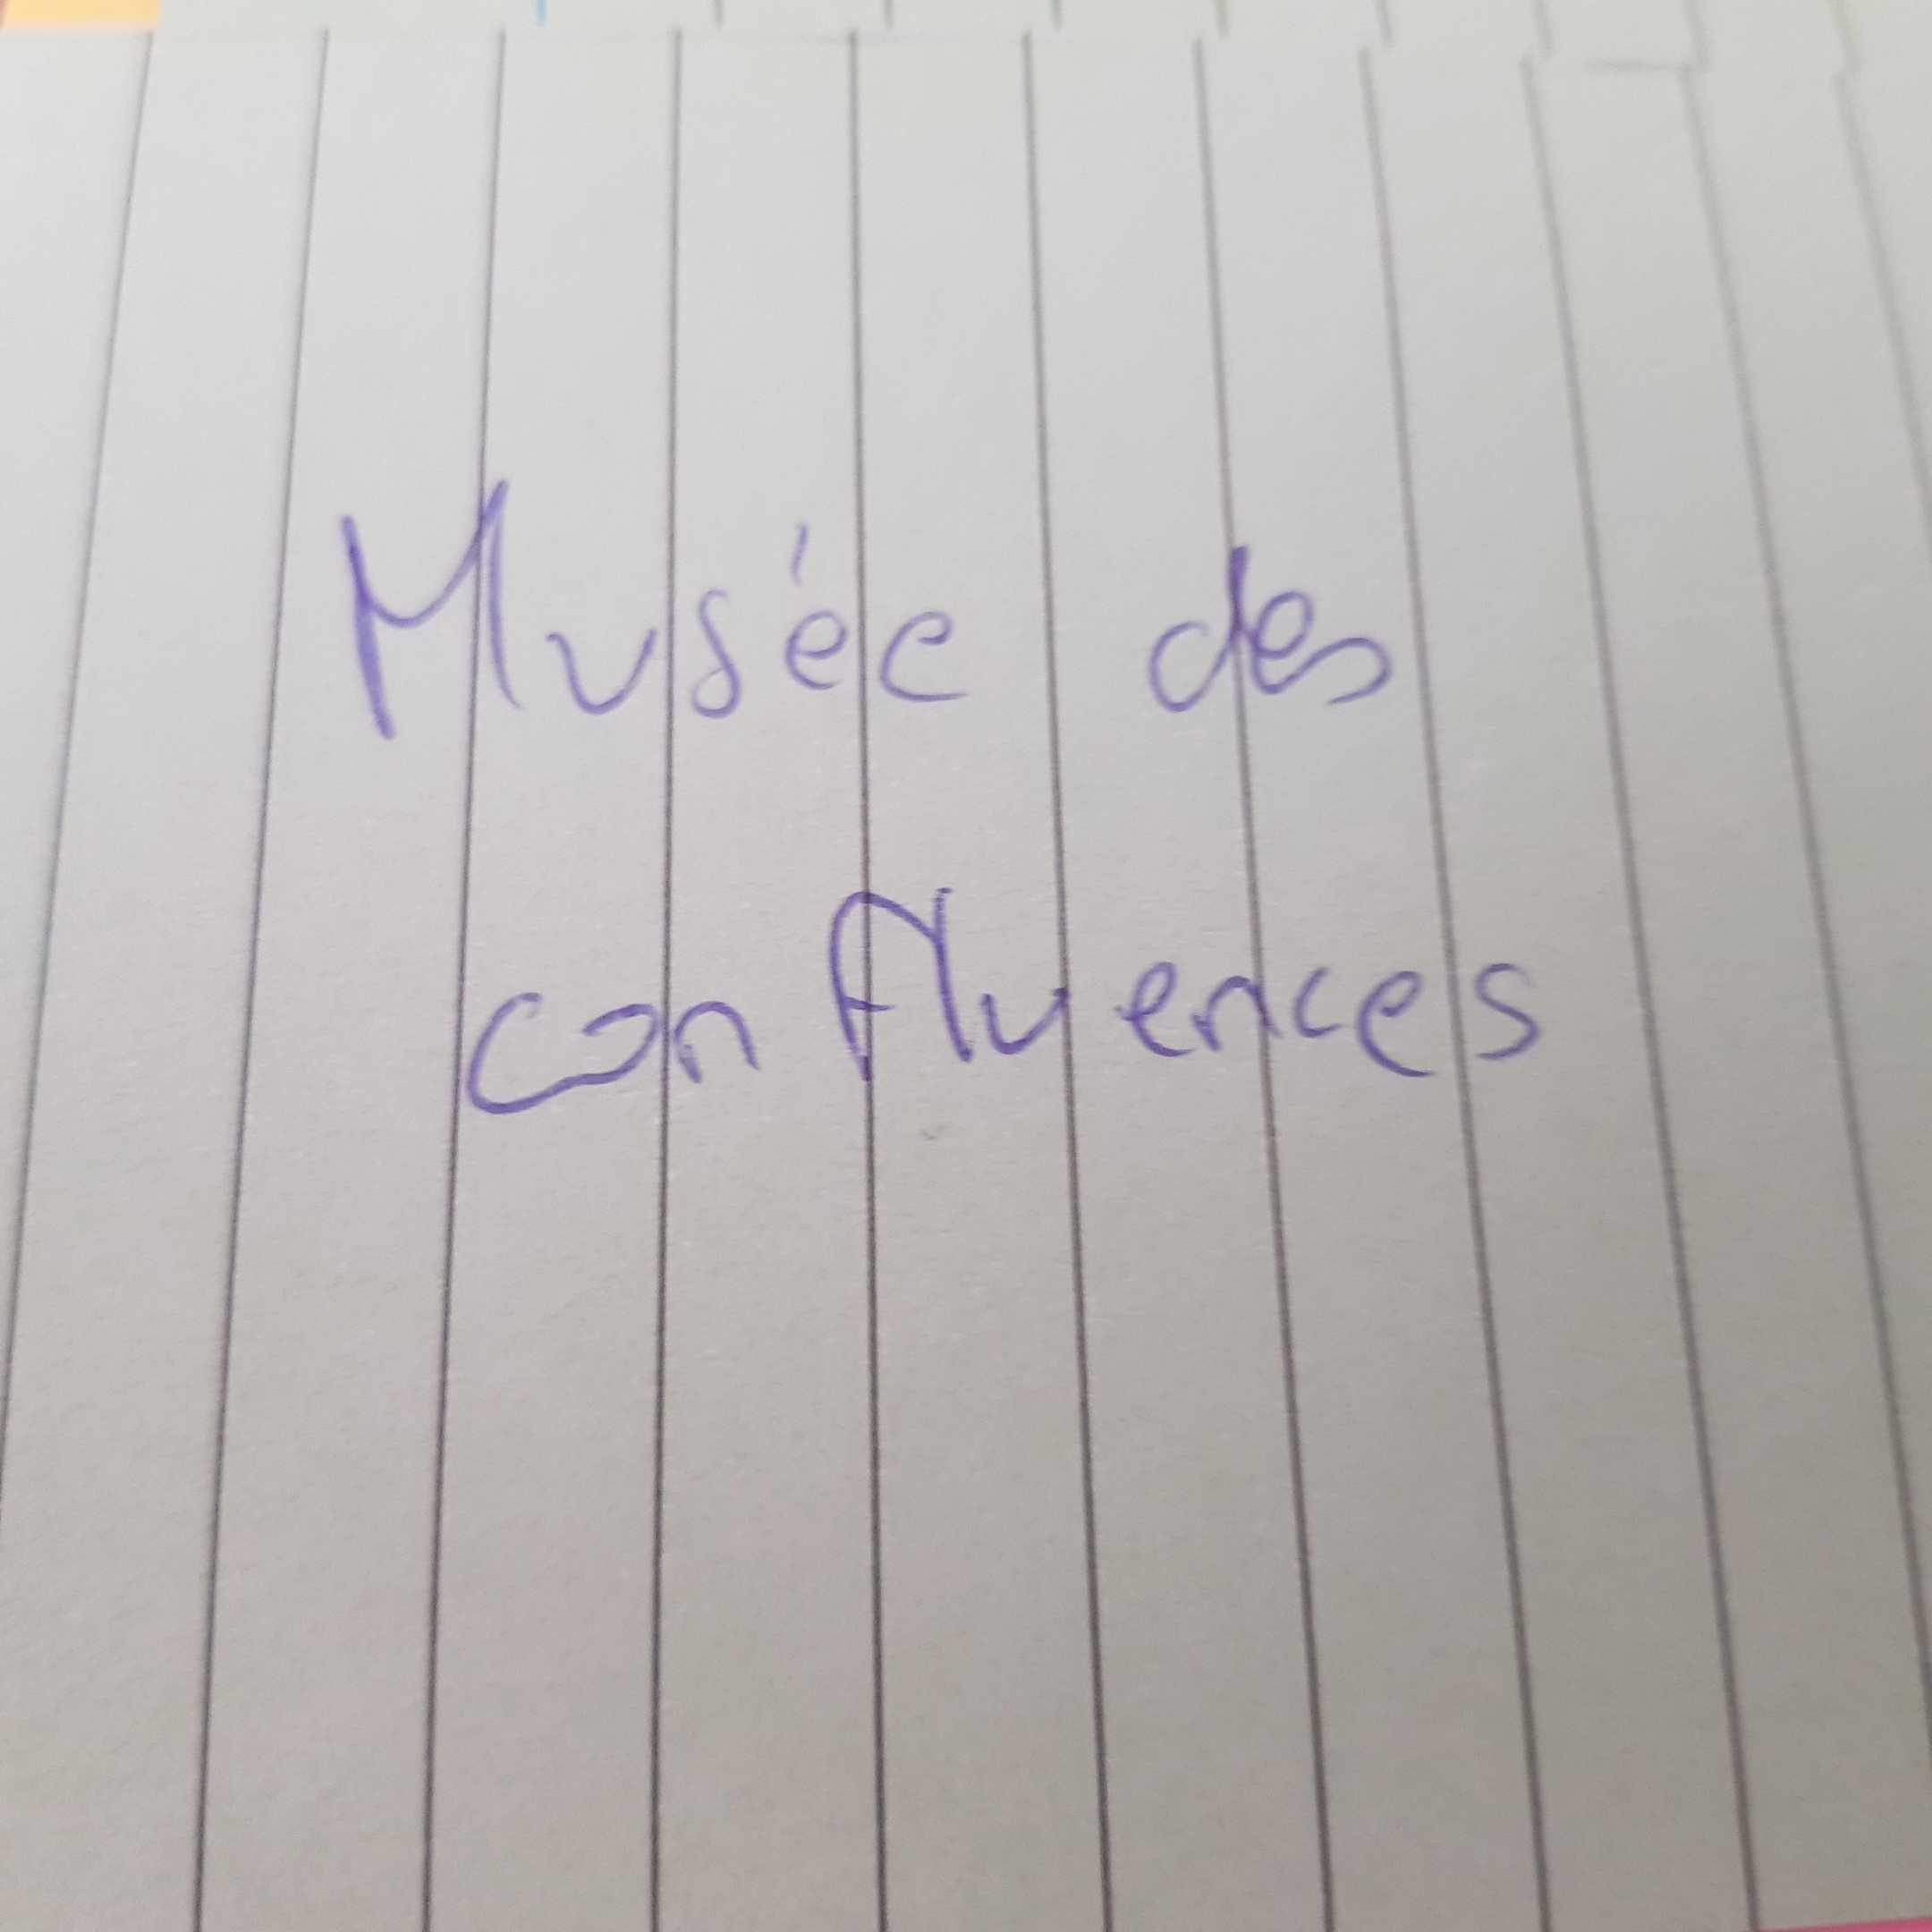 Musée des
confluences